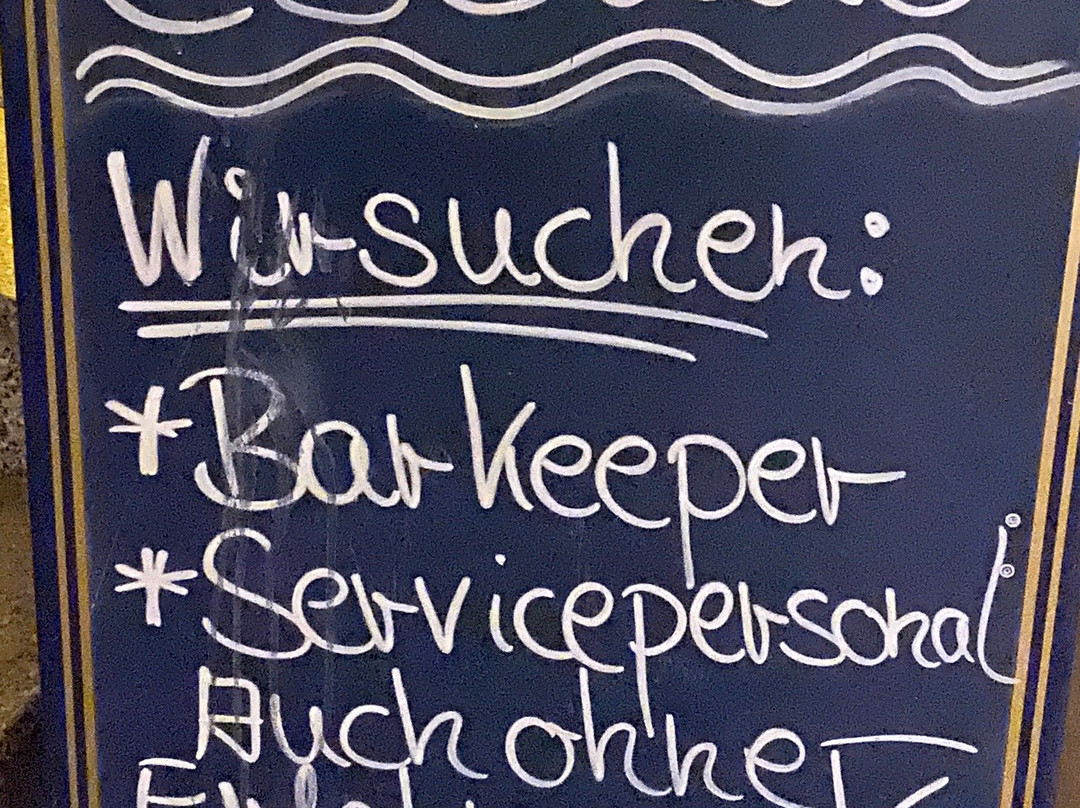 Wir suchen:
* Barkeeper
* Servicepersonal
Auch ohne